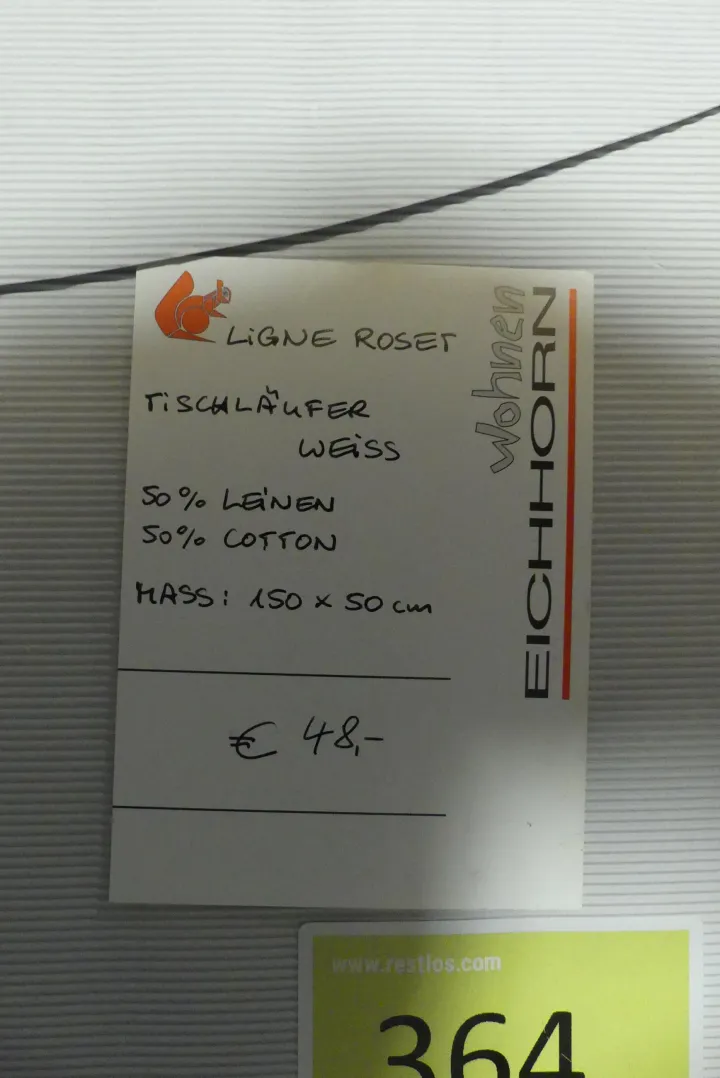 LIGNE ROSET
TISCHLÄUFER
WEISS
50% LEINEN
50% COTTON
MASS: 150 x 50 cm
€ 48,-
Wohnen
EICHHORN
www.restlos.com
364